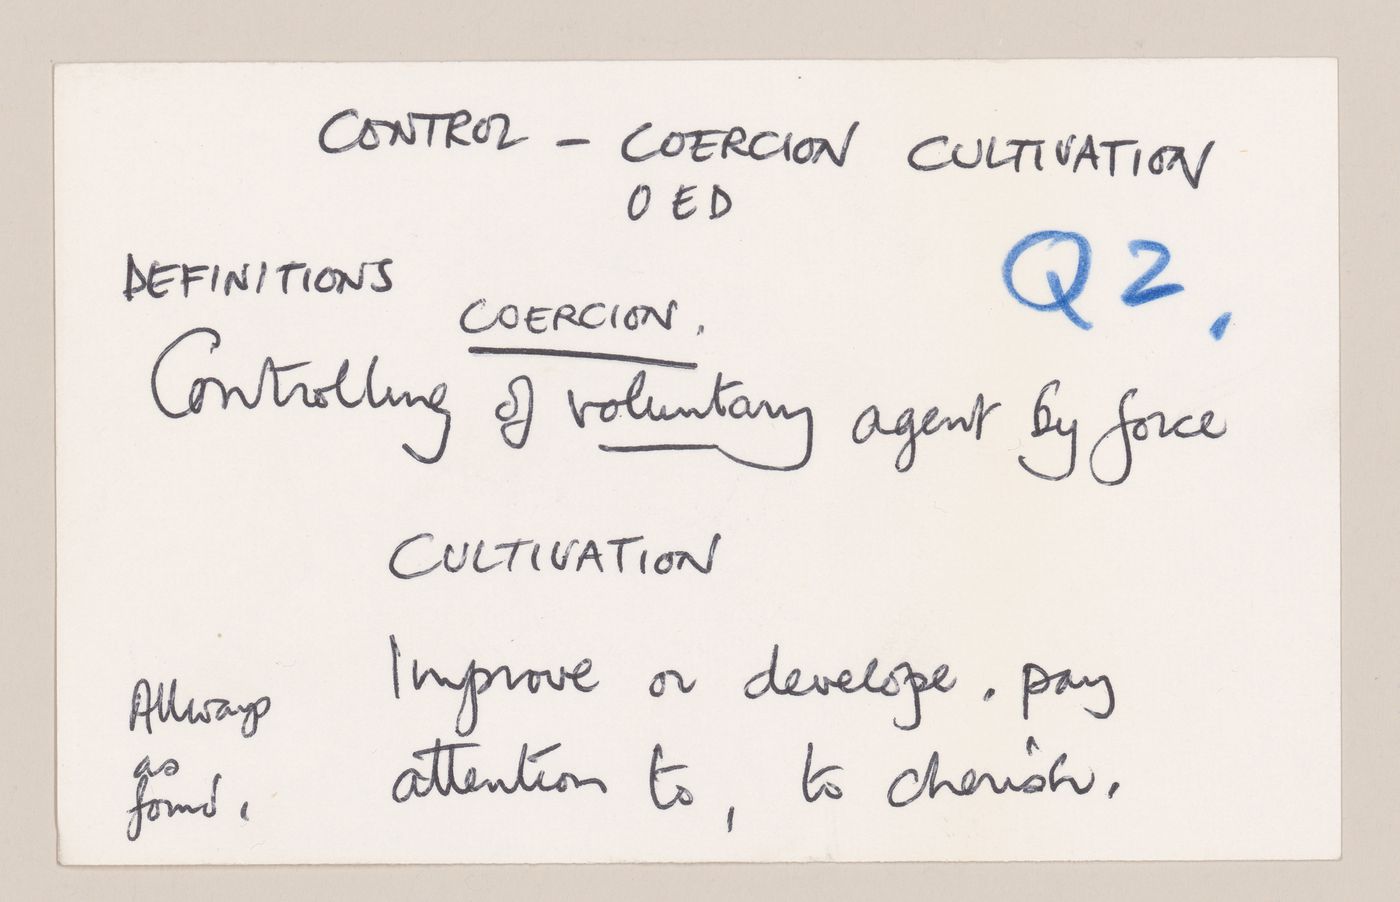 CONTROL – COERCION CULTIVATION
OED
Q2.
DEFINITIONS
COERCION.
Controlling of voluntary agent by force
CULTIVATION
Improve or develope. pay
attention to, to cherish.
Allways
as
found.